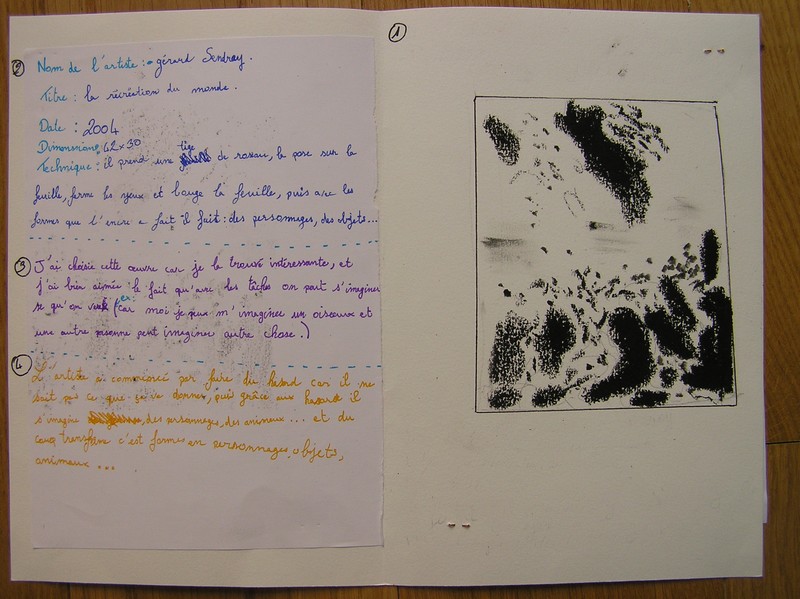 ②
Nom de l'artiste :• gérard Sendrey.
Titre : la récréation du monde.
Date : 2004
Dimensions : 42x30
Technique : il prend une tige de roseau, la pose sur la
feuille, ferme les yeux et bouge la feuille, puis avec les
formes que l'encre a fait il fait : des personnages, des objets...
③ J'ai choisie cette œuvre car je la trouve intéressante, et
j'ai bien aimée le fait qu'avec les tâches on peut s'imaginer
se qu'on veut (car moi je peux m'imaginer un oiseaux et
une autre personne peut imaginer autre chose.)
④
L'artiste a commencé par faire du hasard car il ne
sait pas ce que ça va donner, puis grâce aux hasard il
s'imagine des personnages, des animaux ... et du
coup transforme c'est formes en personnages, objets,
animaux ...
①